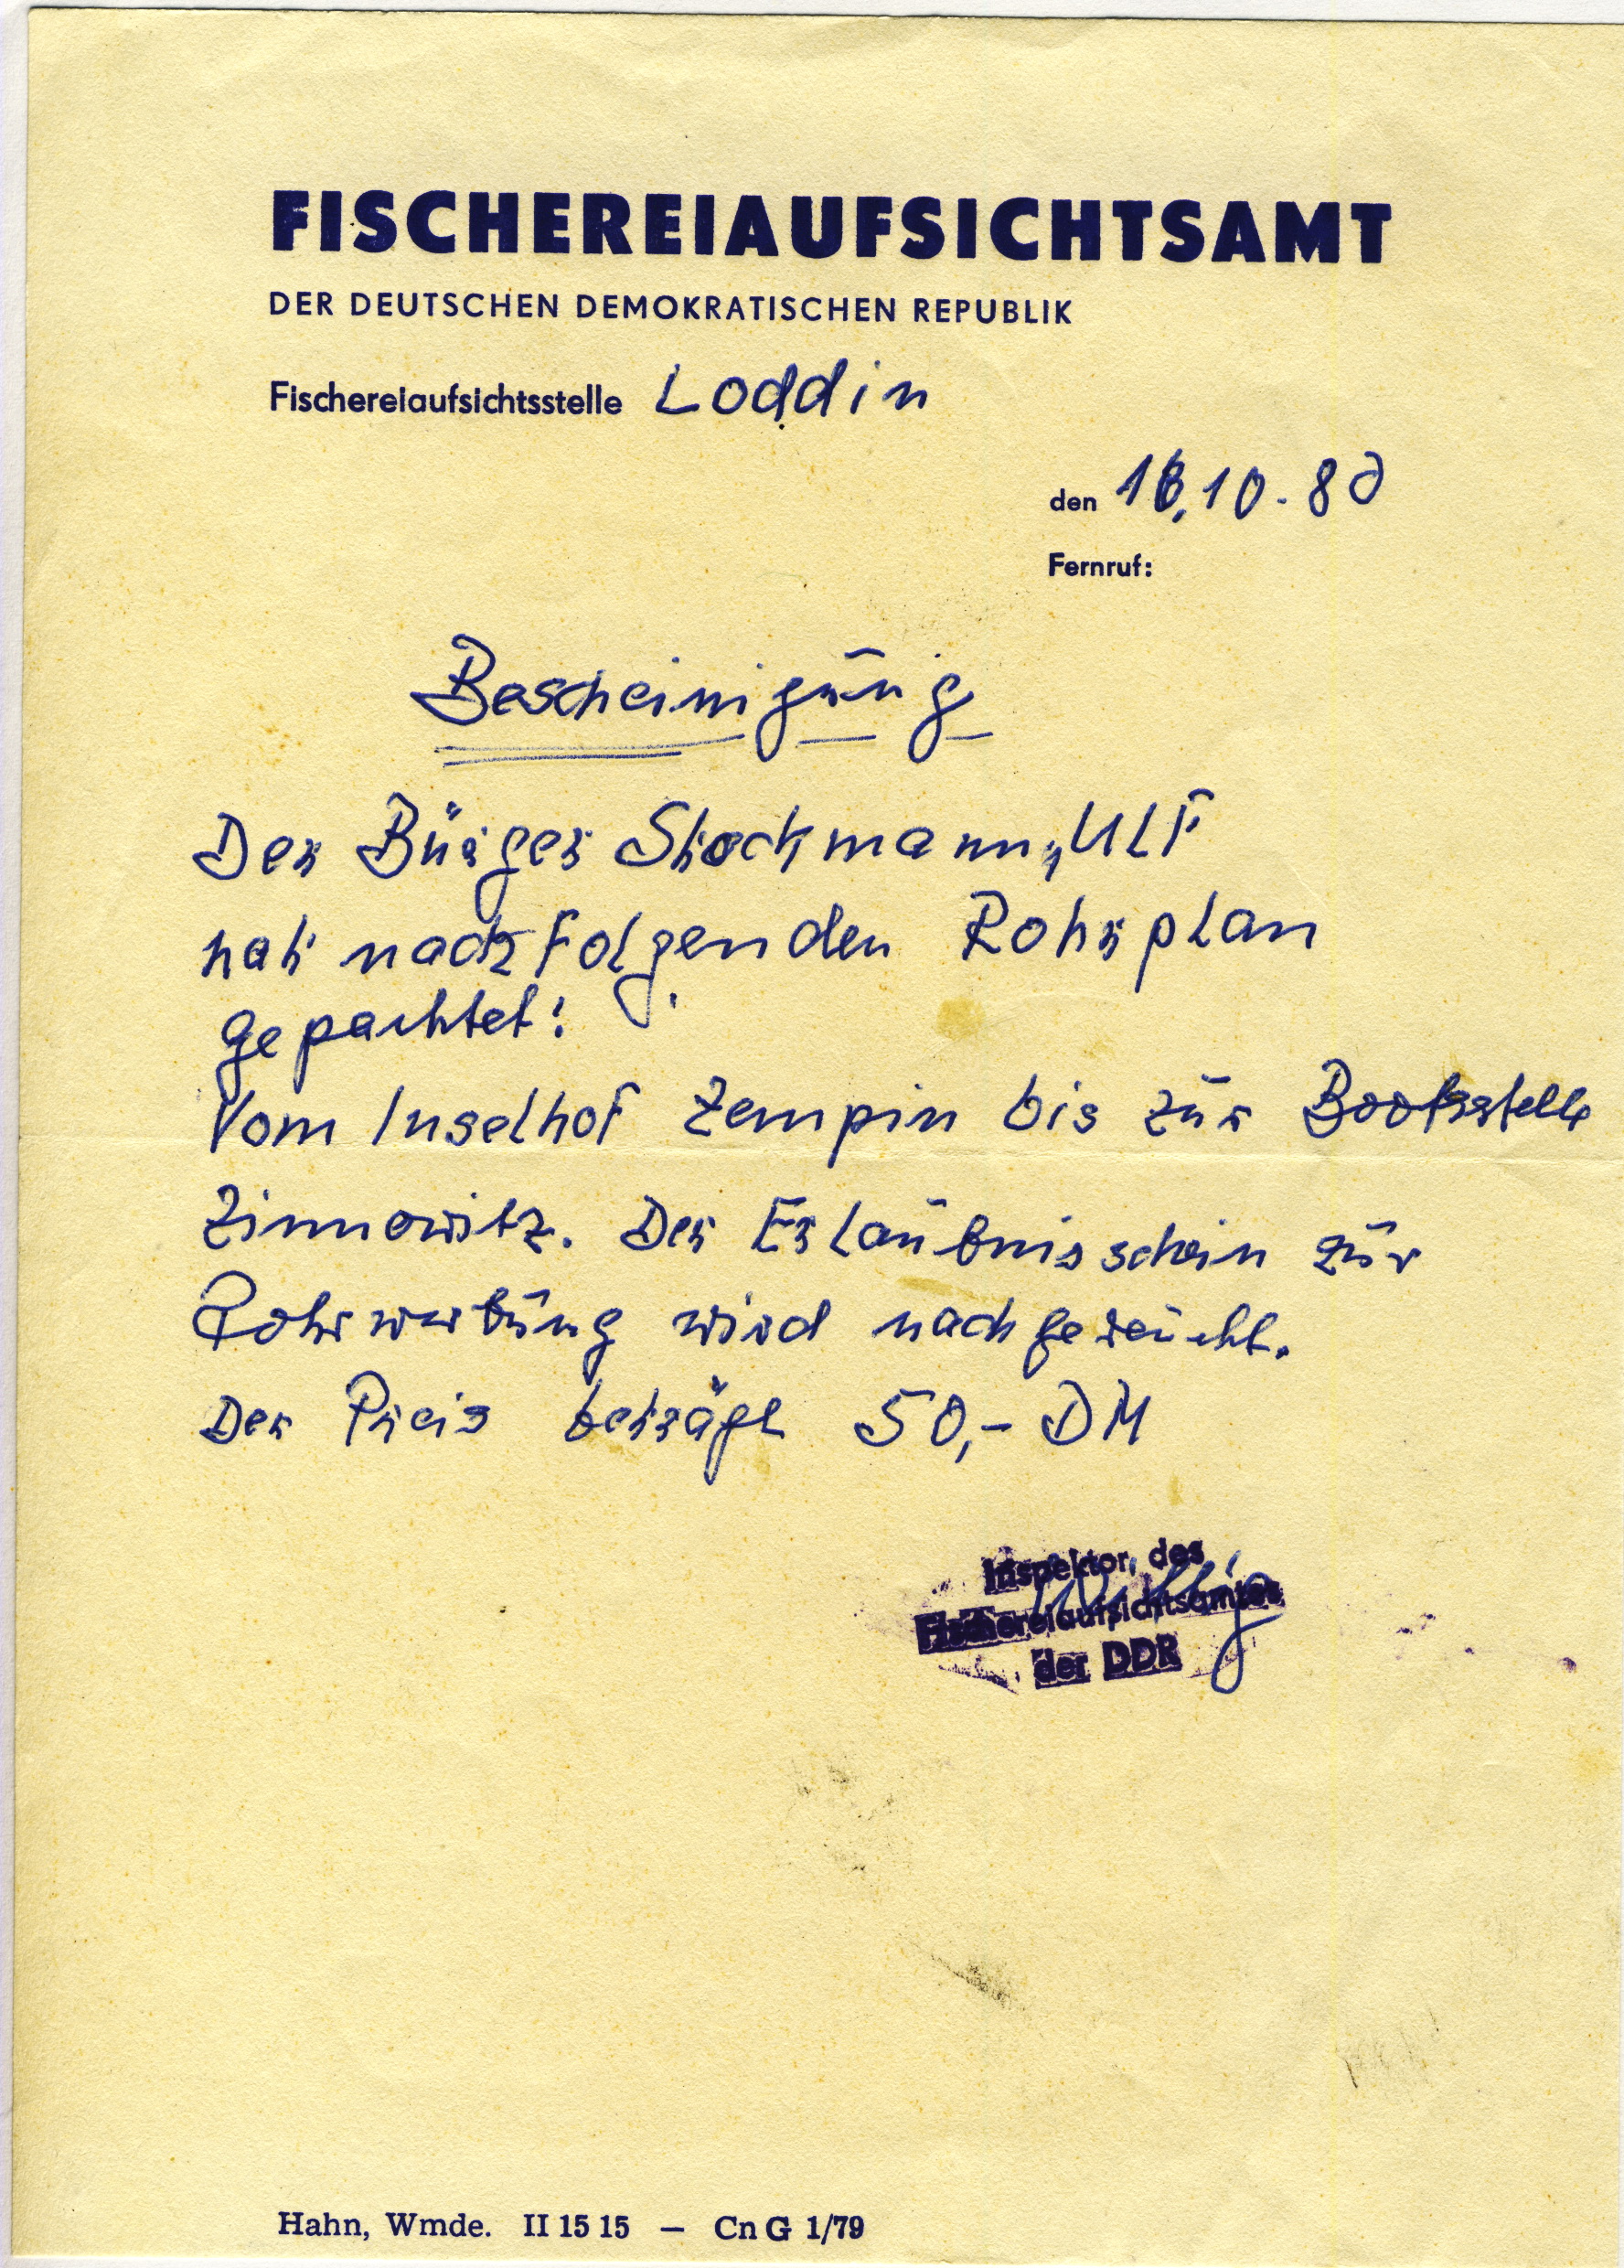 FISCHEREIAUFSICHTSAMT
DER DEUTSCHEN DEMOKRATISCHEN REPUBLIK
Fischereiaufsichtsstelle Loddin
den 18.10.80
Fernruf:
Bescheinigung
Der Bürger Stockmann, Ulf
hat nachfolgenden Rohrplan
gepachtet:
Vom Inselhof Zempin bis zur Bootsstelle
Zinnowitz. Der Erlaubnisschein zur
Rohrwerbung wird nachgereicht.
Der Preis beträgt 50,- DM
Inspektor des
Fischereiaufsichtsamtes
der DDR
Hahn, Wmde. II 15 15 — Cn G 1/79